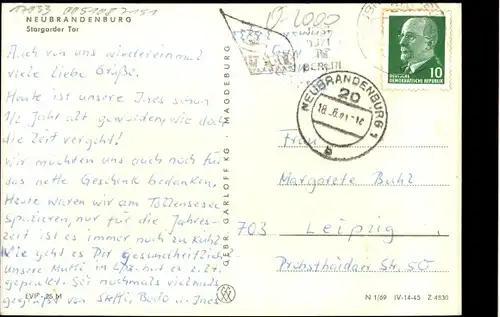 17933 0051102151
NEUBRANDENBURG
Stargarder Tor
D-1000
BERLIN
DEUTSCHE
DEMOKRATISCHE REPUBLIK
10
NEUBRANDENBURG 1
20
18.-6.
b
Auch von uns wiedereinmal
viele liebe Grüße.
Heute ist unsere Ines schon
1/2 Jahr alt geworden, wie doch
die Zeit vergeht!
Wir möchten uns auch noch für
das nette Geschenk bedanken.
Heute waren wir am Tollensesee
spazieren, nur für die Jahres-
zeit ist es immer noch zu kühl.
Wie geht es Dir gesundheitlich?
Unsere Mutti in Lpz. hat es z. Zt.
gepackt. Sei nochmals vielmals
gegrüßt von Steffi, Bodo u. Ines
GEBR. GARLOFF KG · MAGDEBURG
Frau
Margarete Buhl
703 Leipzig
Probstheidaer Str. 50
EVP -,25 M
N 1/69 IV-14-45 Z 4530